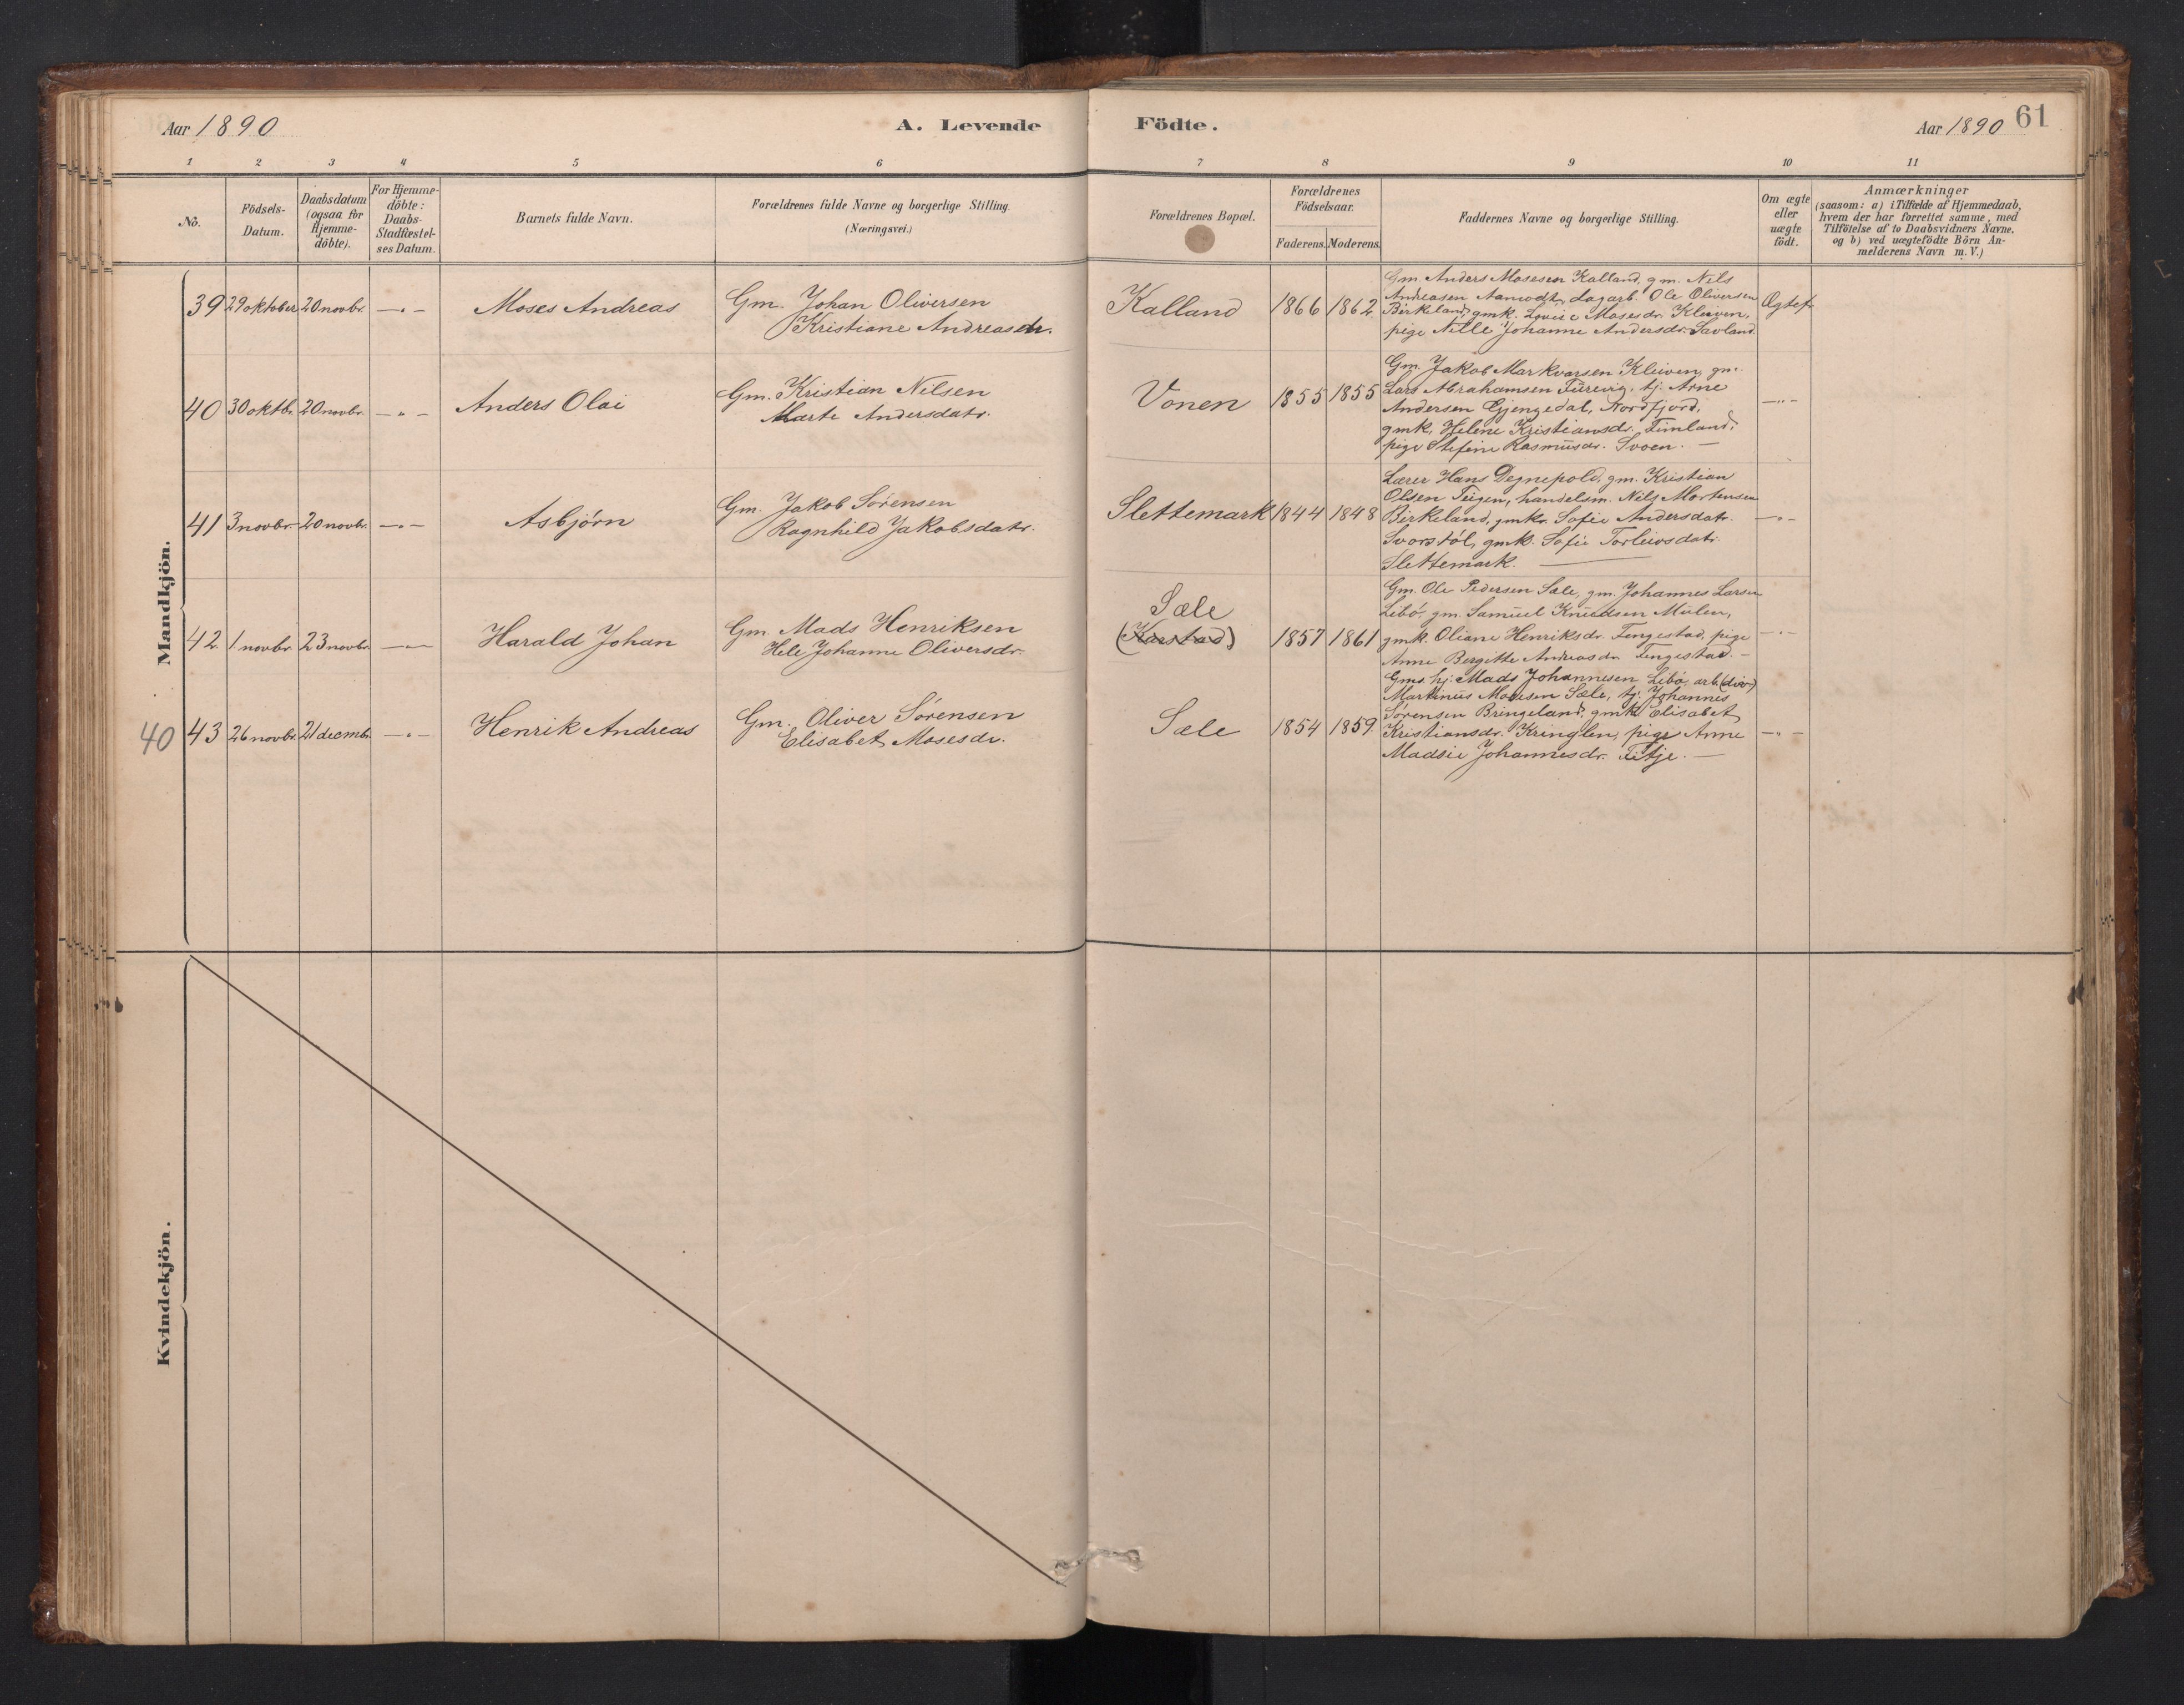 Aar 1890
A. Levende
Födte.
Aar 1890
61
1 2 3 4 5 6 7 8 9 10 11
No.
Födsels-
Datum.
Daabsdatum
(ogsaa for
Hjemme-
döbte).
For Hjemme-
döbte:
Daabs-
Stadfæstel-
ses Datum.
Barnets fulde Navn.
Forældrenes fulde Navne og borgerlige Stilling.
(Næringsvei.)
Forældrenes Bopæl.
Forældrenes
Födselsaar.
Faderens. Moderens.
Faddernes Navne og borgerlige Stilling.
Om ægte
eller
uægte
födt.
Anmærkninger
(saasom: a) i Tilfælde af Hjemmedaab,
hvem der har forrettet samme, med
Tilföielse af to Daabsvidners Navne.
og b) ved uægtefödte Börn An-
melderens Navn m. V.)
Mandkjön.
39 29 oktober 20 novbr. —"— Moses Andreas
Gm. Johan Oliversen
Kristiane Andreasdr.
Kalland 1866 1862.
Gm. Anders Mosesen Kalland, gm. Nils
Andreasen Aamodt, dagarb. Ole Oliversen
Birkeland, gmk. Lovise Mosesdr. Kleiven,
pige Nille Johanne Andersdr. Savland.
Ægtef.
40 30 oktbr. 20 novbr. —"— Anders Olai
Gm. Kristian Nilsen
Marte Andersdatr.
Vonen 1855 1855
Gm. Jakob Markvarsen Kleiven, gm.
Lars Abrahamsen Turevig, tj. Arne
Andersen Gjengedal, Nordfjord,
gmk. Helene Kristiansdr. Timland,
pige Stefine Rasmusdr. Svoen. —
—"—
41 3 novbr. 20 novbr. —"— Asbjørn
Gm. Jakob Sørensen
Ragnhild Jakobsdatr.
Slettemark 1844 1848
Lærer Hans Degnepold, gm. Kristian
Olsen Teigen, handelsm. Nils Mortensen
Birkeland, gmkr. Sofie Andersdatr.
Svorstøl, gmk. Sofie Torleivsdatr.
Slettemark. —
—"—
42. 1 novbr. 23 novbr. —"— Harald Johan
Gm. Mads Henriksen
Hele Johanne Oliversdr.
Sæle
(Karstad)
1857 1861
Gm. Ole Pedersen Sæle, gm. Johannes Larsen
Libø, gm. Samuel Knudsen Mulen,
gmk. Oliane Henriksdr. Tengestad, pige
Anne Bergitte Andreasdr. Tengestad. —
—"—
40
43 26 novbr. 21 decmbr. —"— Henrik Andreas
Gm. Oliver Sørensen
Elisabet Mosesdr.
Sæle 1854 1859.
Gms. hj. Mads Johannesen Libø, arb. (div.)
Martinus Mosesen Sæle, tj. Johannes
Sørensen Bringeland, gmk Elisabet
Kristiansdr. Kringlen, pige Anne
Madsie Johannesdr. Fitje. —
—"—
Kvindekjön.